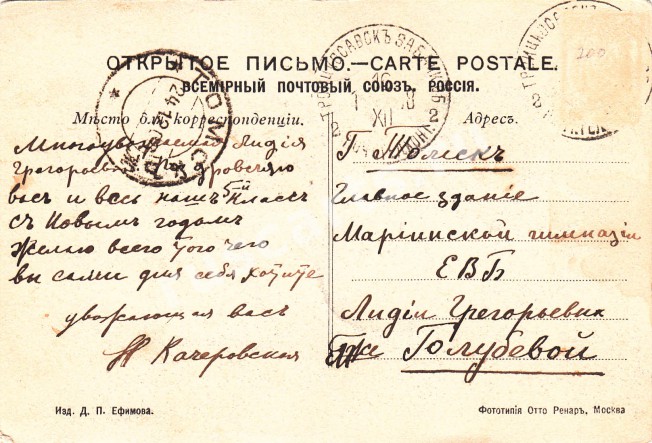 ОТКРЫТОЕ ПИСЬМО.—CARTE POSTALE.
ВСЕМІРНЫЙ ПОЧТОВЫЙ СОЮЗЪ. РОССІЯ.
Мѣсто для корреспонденціи.
Адресъ.
ТОМСКЪ
24 12
16
XII
2
2
200
Многоуважаемая Лидія
васъ и весь нашъ 5ый классъ
съ Новымъ годомъ
Желаю всего того чего
вы сами для себя хотите
уважающая васъ
Н Качеровская
Г. Томскъ
Главное зданіе
Маріинской гимназіи
ЕВБ
Лидіи Грегорьевн
Голубевой
Изд. Д. П. Ефимова.
Фототипія Отто Ренаръ, Москва